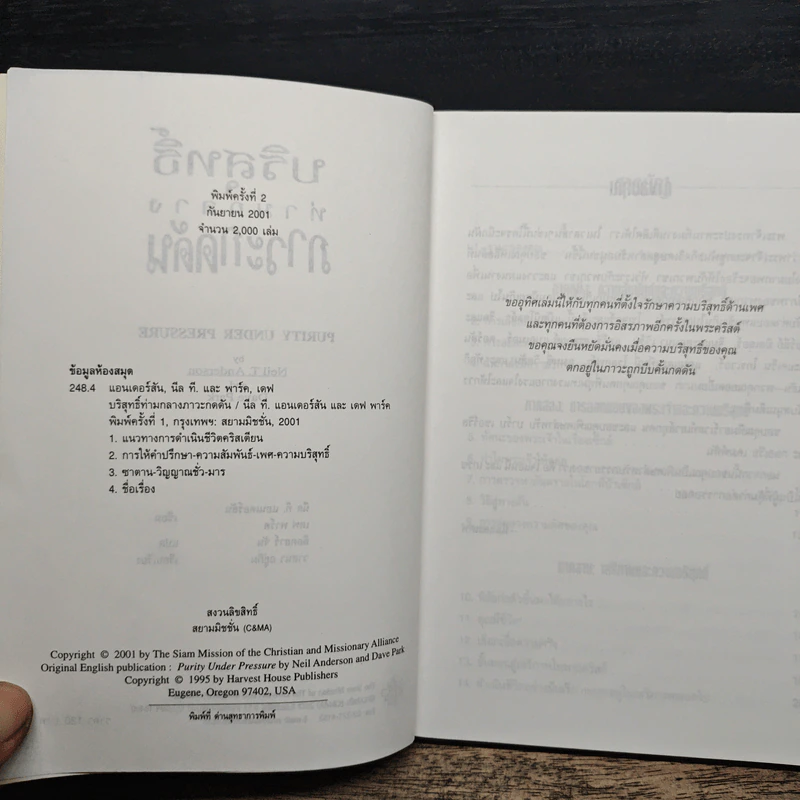 พิมพ์ครั้งที่ 2
กันยายน 2001
จำนวน 2,000 เล่ม
ข้อมูลห้องสมุด
248.4 แอนเดอร์สัน, นีล ที. และ พาร์ค, เดฟ
บริสุทธิ์ท่ามกลางภาวะกดดัน / นีล ที. แอนเดอร์สัน และ เดฟ พาร์ค
พิมพ์ครั้งที่ 1, กรุงเทพฯ: สยามมิชชั่น, 2001
1. แนวทางการดำเนินชีวิตคริสเตียน
2. การให้คำปรึกษา-ความสัมพันธ์-เพศ-ความบริสุทธิ์
3. ซาตาน-วิญญาณชั่ว-มาร
4. ชื่อเรื่อง
สงวนลิขสิทธิ์
สยามมิชชั่น (C&MA)
Copyright © 2001 by The Siam Mission of the Christian and Missionary Alliance
Original English publication : Purity Under Pressure by Neil Anderson and Dave Park
Copyright © 1995 by Harvest House Publishers
Eugene, Oregon 97402, USA
พิมพ์ที่ ด่านสุทธาการพิมพ์
ขออุทิศเล่มนี้ให้กับทุกคนที่ตั้งใจรักษาความบริสุทธิ์ด้านเพศ
และทุกคนที่ต้องการอิสรภาพอีกครั้งในพระคริสต์
ขอคุณจงยืนหยัดมั่นคงเมื่อความบริสุทธิ์ของคุณ
ตกอยู่ในภาวะถูกบีบคั้นกดดัน